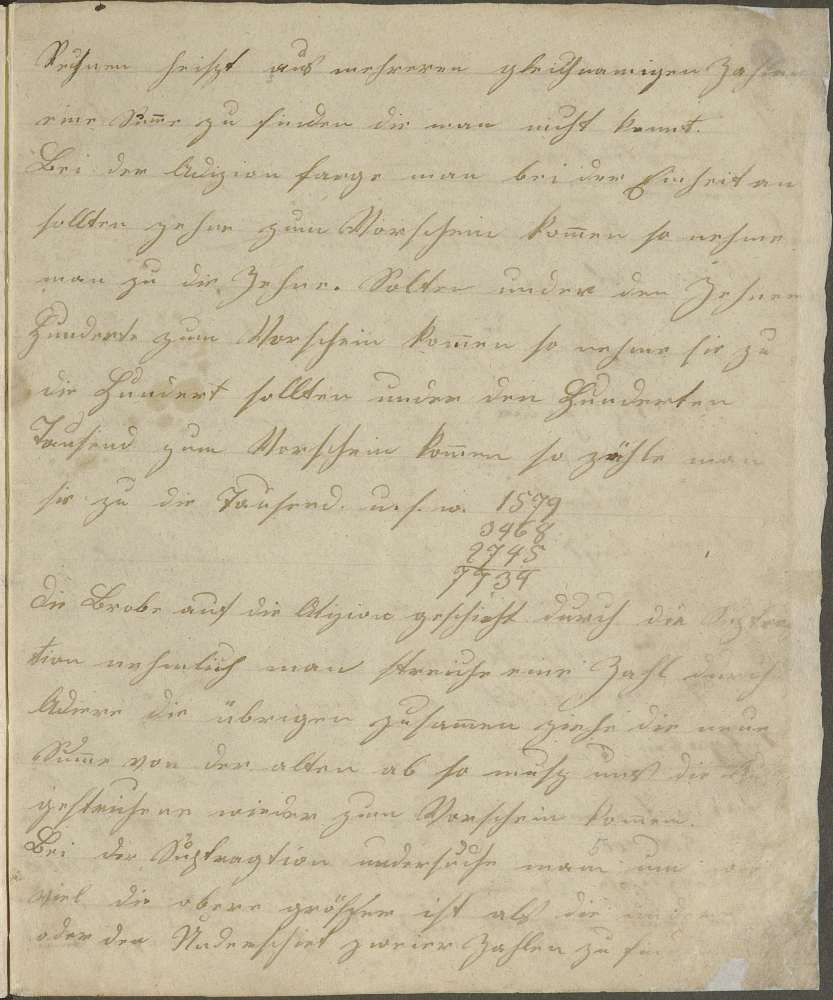 Rechnen heiszt aus mehreren gleichnamigen Zahlen
eine Sum̅e zu finden die man nicht kennt.
Bei der Adizion fange man bei der Einheit an
sollten zehne zum Vorschein kom̅en so nehme
man zu die Zehne. Solten under den Zehnen
Hunderte zum Vorschein kom̅en so nehme sie zu
die Hundert sollten under den Hunderten
Tausend zum Vorschein kom̅en so zähle man
sie zu die Tausend. u. s. w. 1579
3468
2745
7734
Die Brobe auf die Atizion geschieht durch die
tion nehmlich man streiche eine Zahl durch
Adiere die übrigen zusam̅en ziehe die neue
Sum̅e von der alten ab so musz uns die
gestrichene wieder zum Vorschein kom̅en.
Bei der Suptragtion undersuche man um wie
viel die obere gröszer ist als die undere
oder den Underschiet zweier Zahlen zu